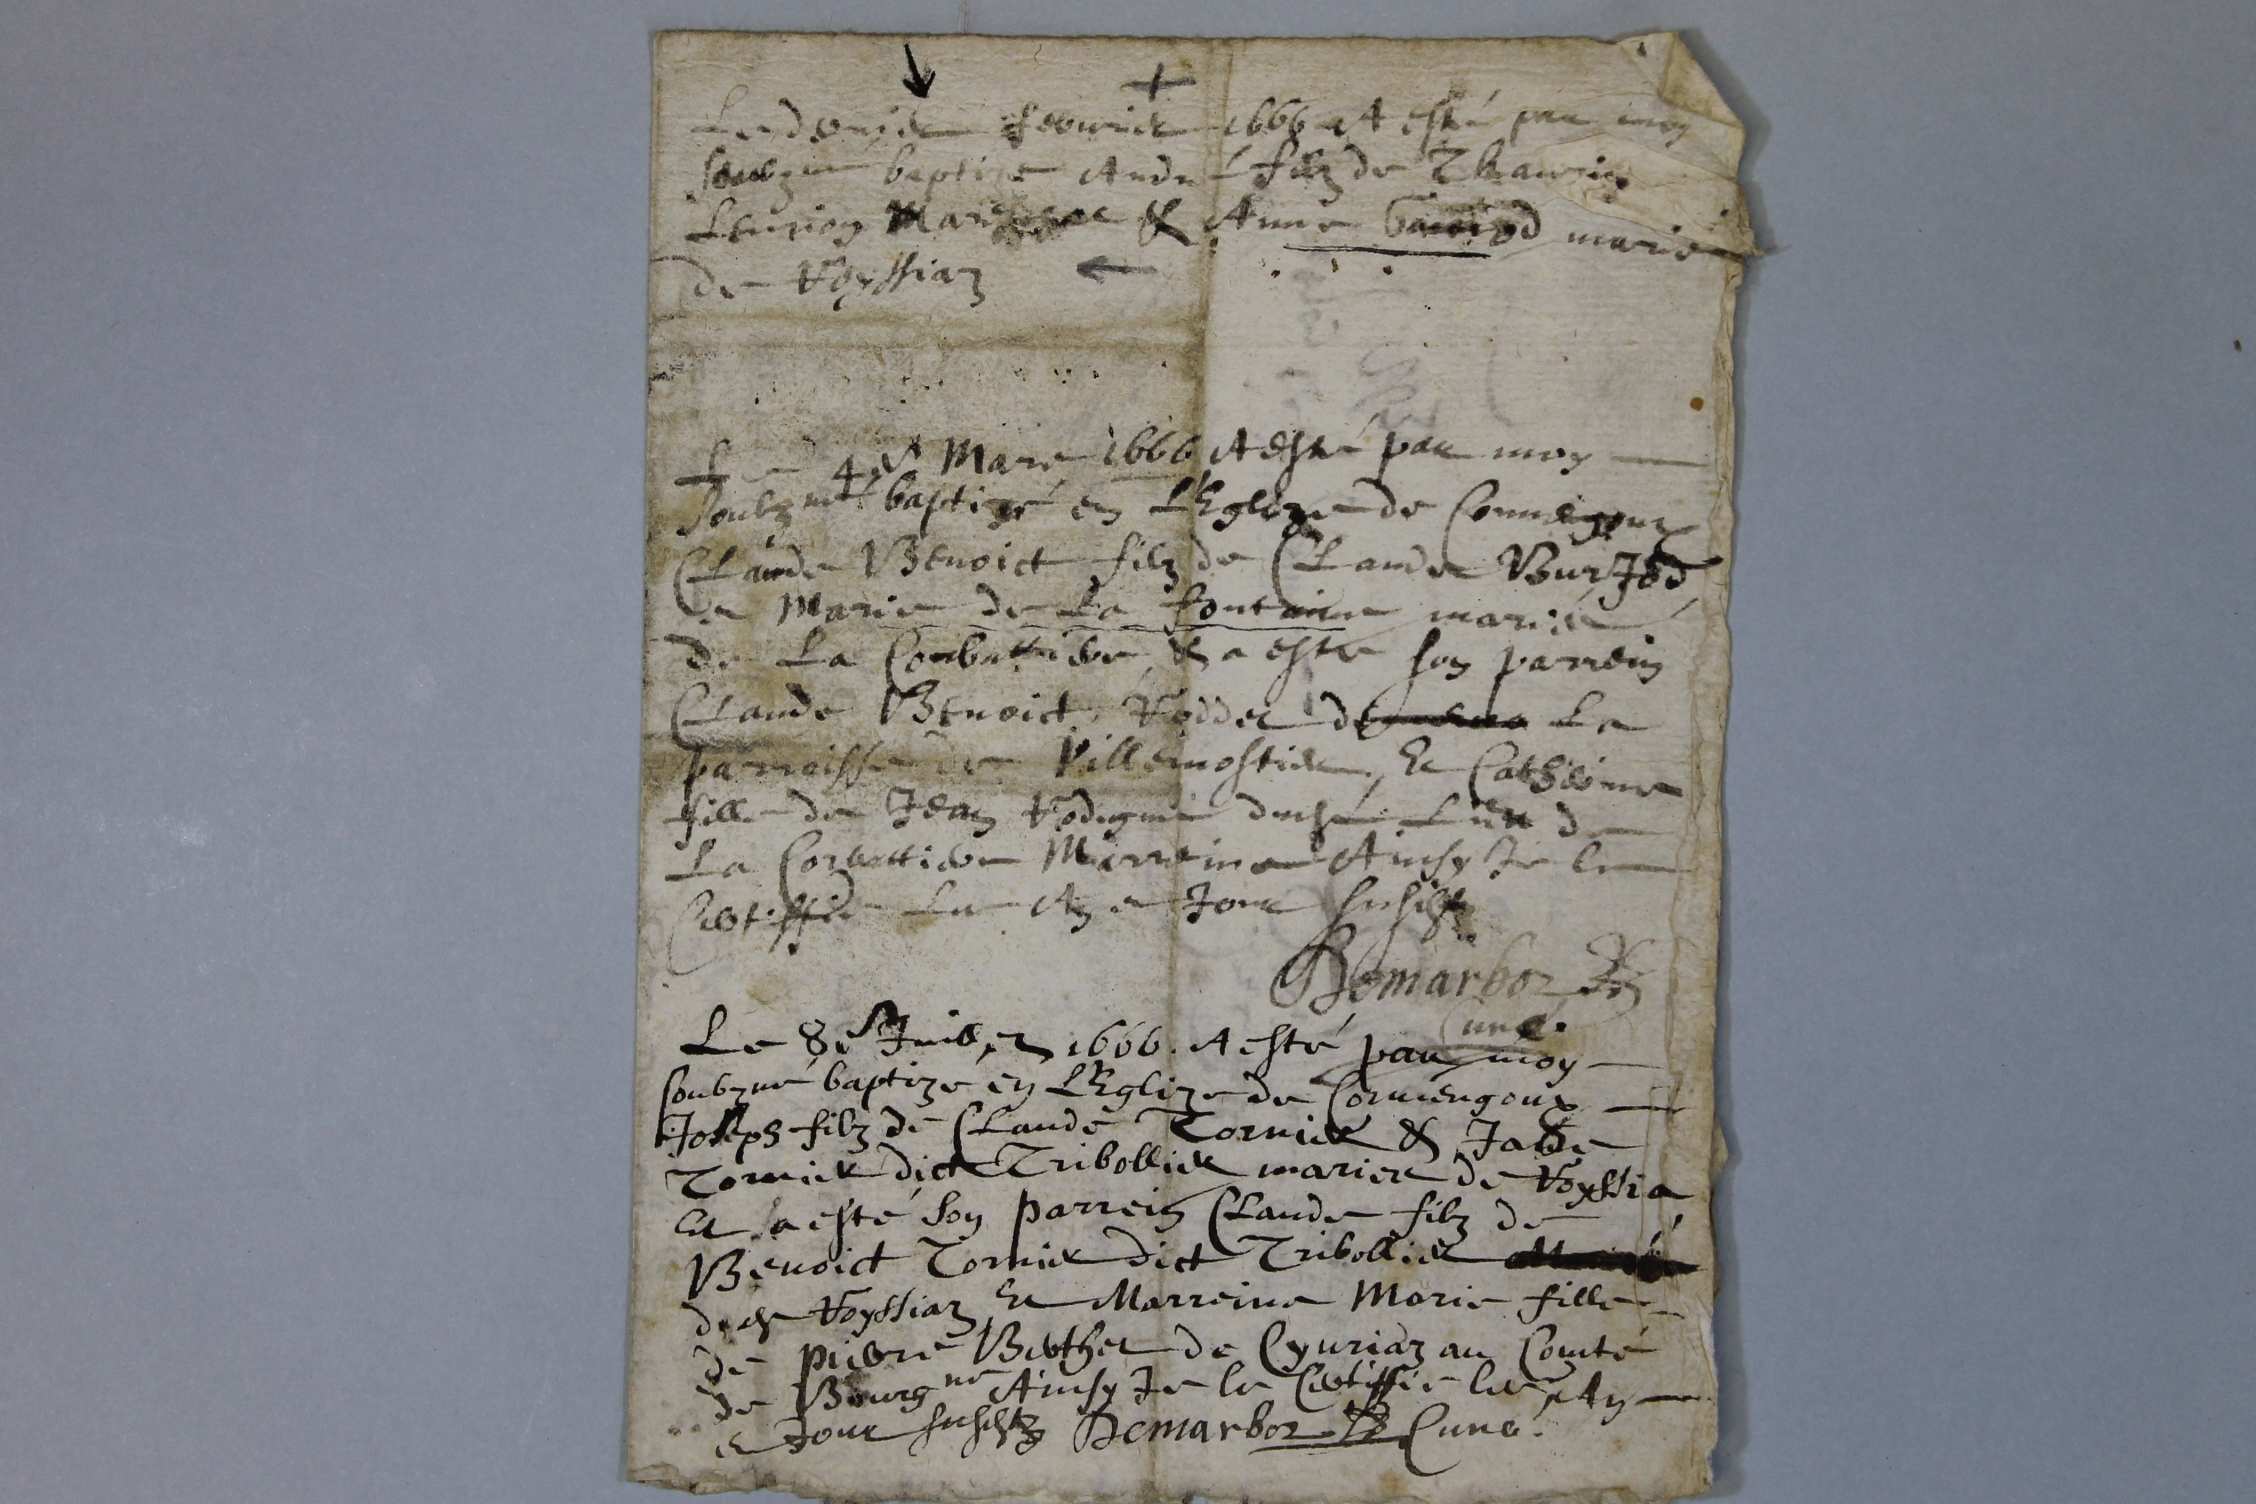 Le dernier febvrier 1666 A esté par moy
soubzné baptizé André filz de Thaurin
Lturion & Anne mariés
de Voyssiaz
Le 4e Mars 1666 A esté par moy
soubzné baptizé en L'Eglize de Cormengoux
Claude Benoict filz de Claude Bur Jod
et Marie de La fontaine mariés
de La Corbattiere, & a esté son parrein
Claude Benoict Voddet de La
parroisse de Villemostier, Et Catherine
fille de Jean
La Corbattiere Marreine Ainsy Je le
Certiffie Les An et Jour susdistz
Demarboz
Curé.
Le 8e Juillet 1666. A esté par moy
soubzné baptizé en L'Eglize de Cormengoux
Joseph filz de Claude Tornier & Ja
Tornier dict Tribollier mariez de Voyssia
Et a esté son parrein Claude filz de
Benoict Tornier dict Tribollier
de Voyssiaz Et Marreine Marie fille
de pierre Berthet de Cyuriaz au Comté
de Bourgne Ainsy Je le Certiffie les An
et Jour susdistz Demarboz Curé.